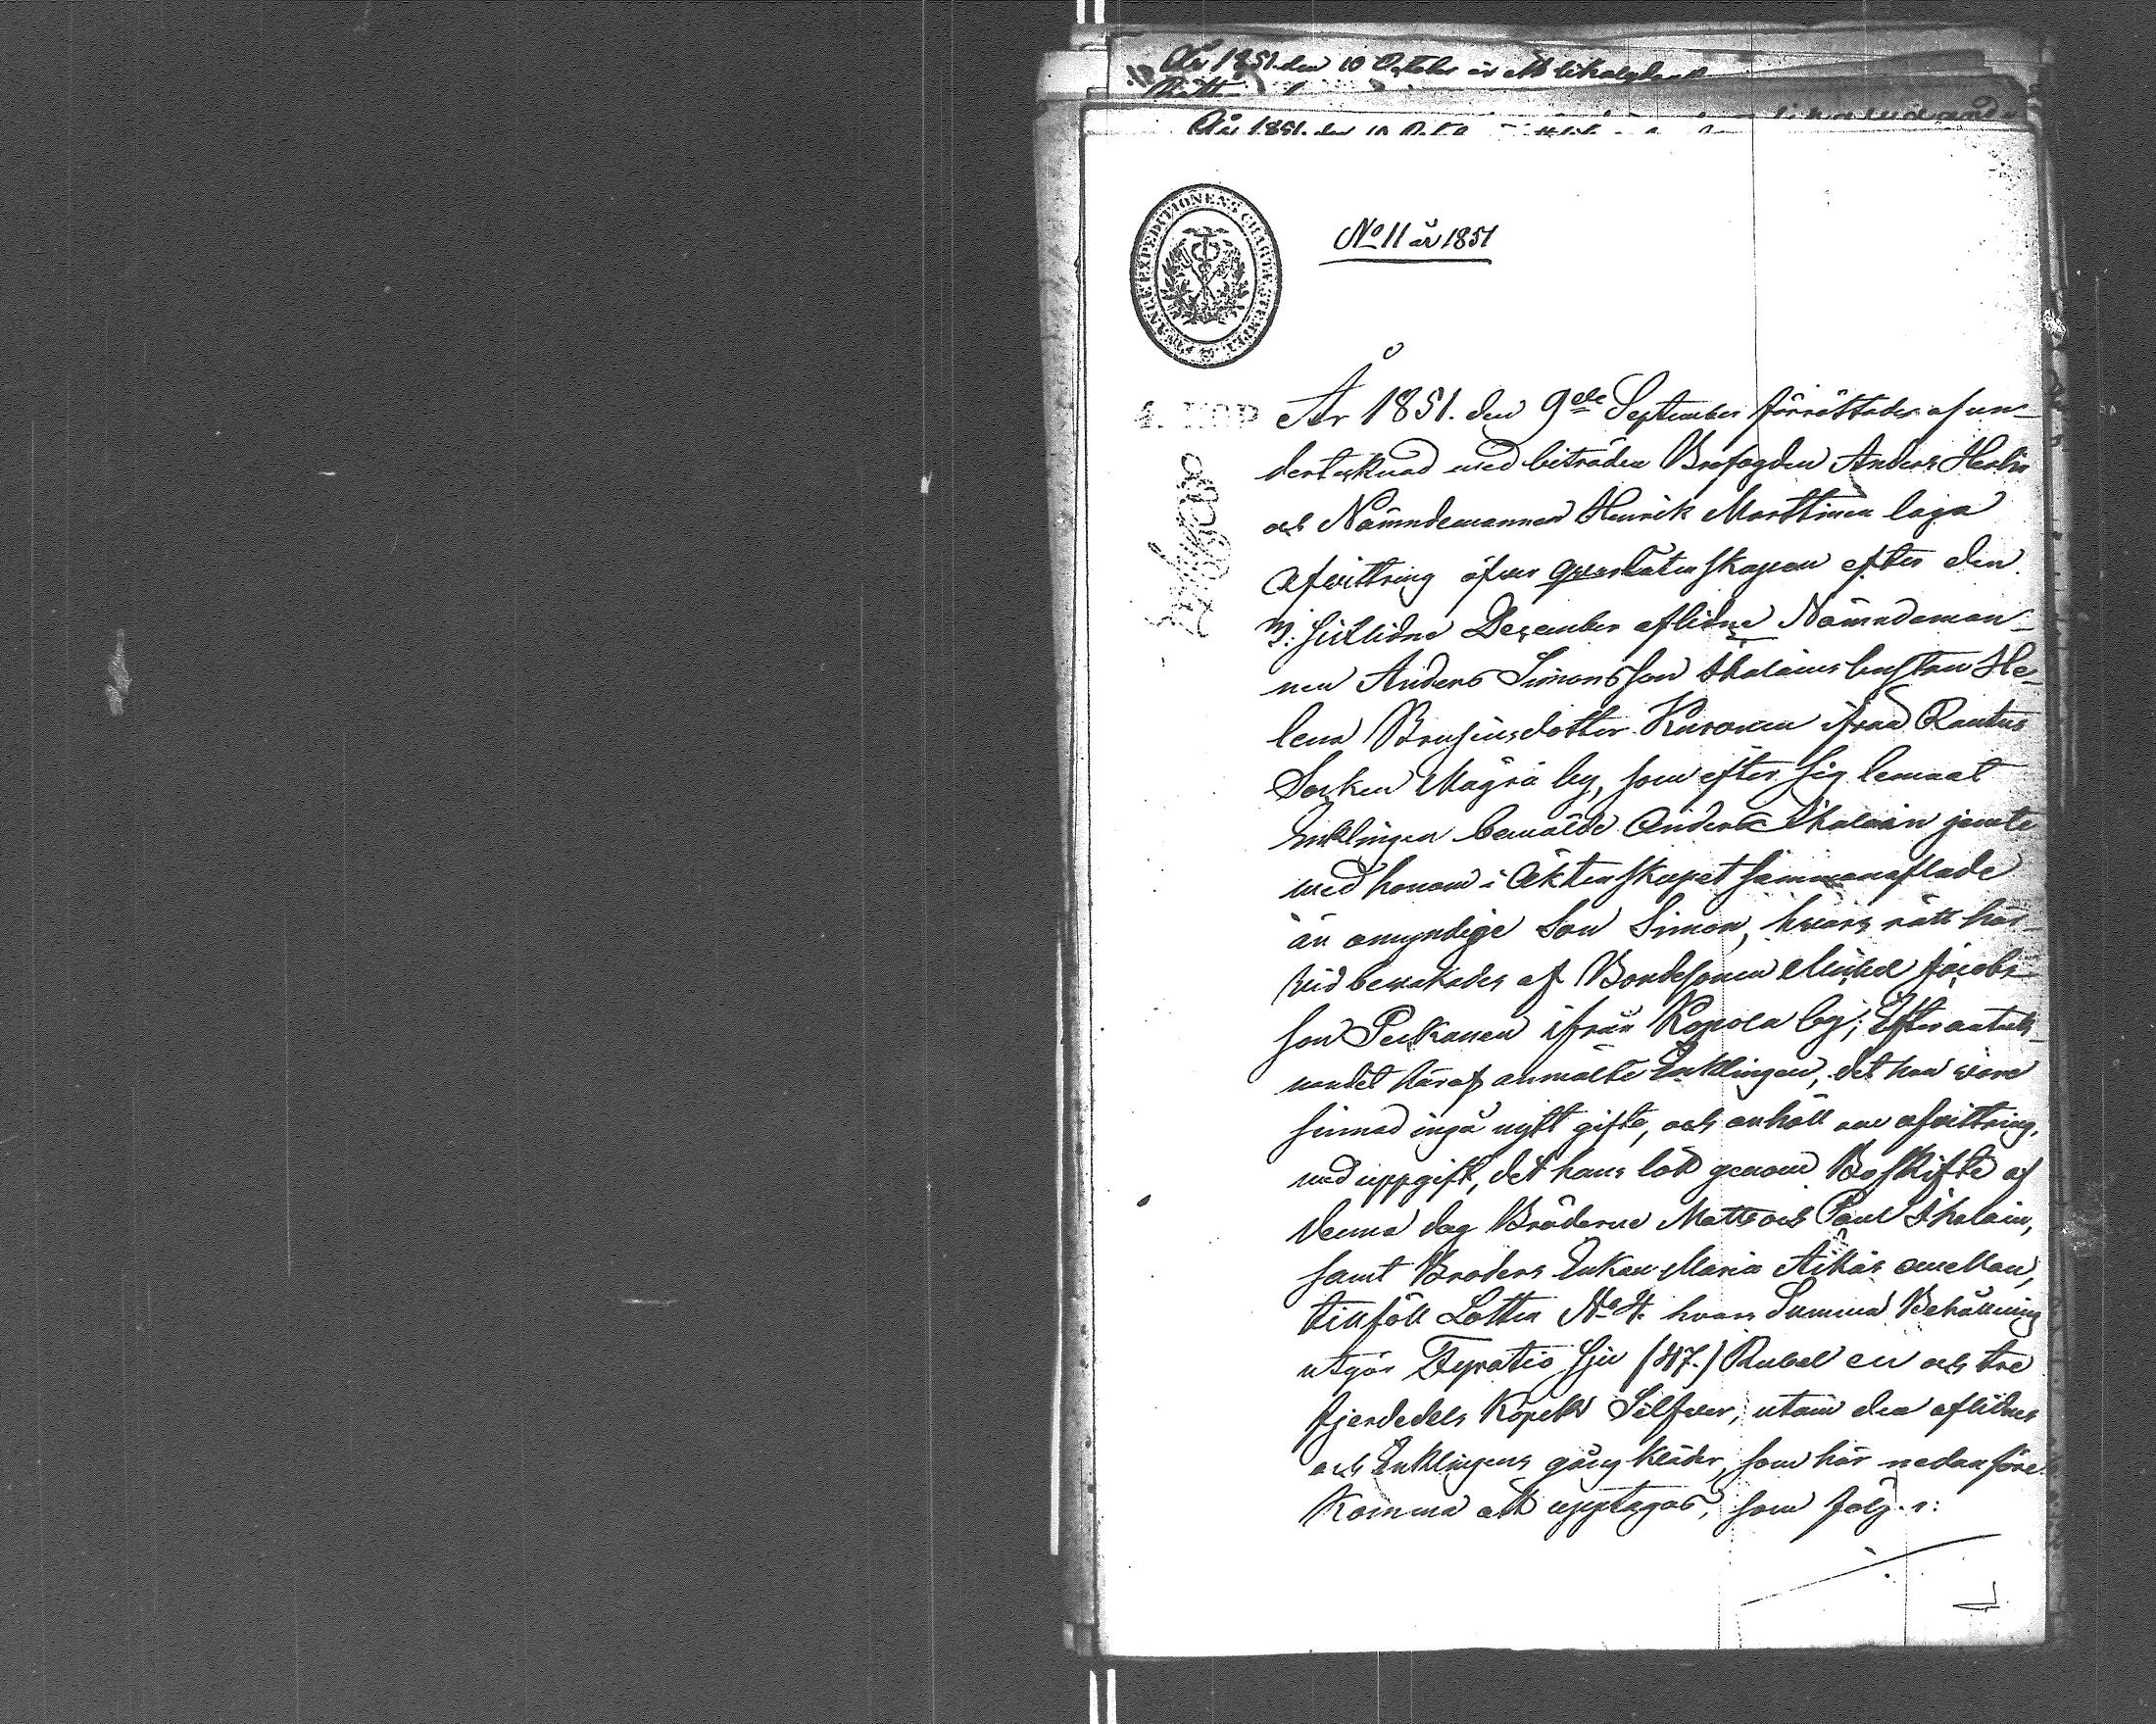 År 1851. den 10 October
År 1851. den 10
FINANCE EXPEDITIONENS CHARTÆ STEMPEL
No 11 år 1851
4. KOP
År 1851. den 9de September förrättades af un-
dertecknad med biträden Brofogden Anders
och Nämndemannen Henrik Marttinen laga
Afvittring öfver qvarlåtenskapen efter den
sistlidne December aflidne Nämndeman-
nen Anders Simonsson Ihalains hustru He-
lena Brusiusdotter Kuronen ifrån Rautus
Socken Mägrä by, som efter sig lemnat
Enklingen bemälde Anders Ihalain jemte
med honom i Äktenskapet sammanaflade
än omyndige Son Simon, hvars rätt här-
vid bevakades af Bondesonen Michel Jacobs-
son Peckanen ifrån by; Efter anteck-
nandet häraf anmälte Enklingen, det han vore
sinnad ingå nytt gifte, och anhöll om afvittring,
med uppgift, det hans lott genom Boskifte af
denna dag Bröderne Matts och Paul Ihalain,
samt Broders Enkan Maria Äikäs emellan,
tillföll Lotten No 4. hvars Summa Behållning
utgör Fyratio sju (47.) Rubel en och tre
fjerdedels Kopek Silfver, utom den aflidnes
och Enklingens gångkläder, som här nedanföre
komma att upptagas, som följer: